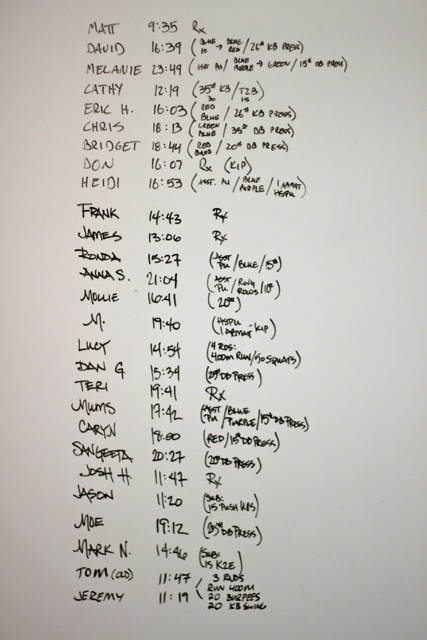 MATT 9:35 Rx
DAVID 16:39 (BLUE 10 → BLUE RED / 26# KB PRESS)
MELANIE 23:49 (ASST PU / BLUE PURPLE → GREEN / 15# DB PRESS)
CATHY 12:19 (35# KB / T2B 15)
ERIC H. 16:03 (RED BLUE / 26# KB PRESS)
CHRIS 18:13 (GREEN BLUE / 35# DB PRESS)
BRIDGET 18:44 (RED BAND / 20# DB PRESS)
DON 16:07 Rx (KIP)
HEIDI 16:53 (ASST. PU / BLUE PURPLE / 1 ABMAT HSPU)
FRANK 14:43 Rx
JAMES 13:06 Rx
RONDA 15:27 (ASST PU / BLUE / 15#)
ANNA S. 21:04 (ASST PU / RING ROWS / 10#)
MOLLIE 16:41 (20#)
M. 19:40 (HSPU 1 ABMAT - KIP)
LUCY 14:54 (4 RDS: 400M RUN/50 SQUATS)
DAN G. 15:34 (25# DB PRESS)
TERI 19:41 Rx
MUMS 17:42 (ASST PU / BLUE PURPLE / 15# DB PRESS)
CARYN 18:00 (RED / 15# DB PRESS)
SANGEETA 20:27 (20# DB PRESS)
JOSH H 11:47 Rx
JASON 11:20 (SUB: 15 PUSH UPS)
MOE 19:12 (25# DB PRESS)
MARK N. 14:46 (SUB: 15 K2E)
TOM 11:47 3 RNDS
RUN 400M
JEREMY 11:19 20 BURPEES
20 KB SWING